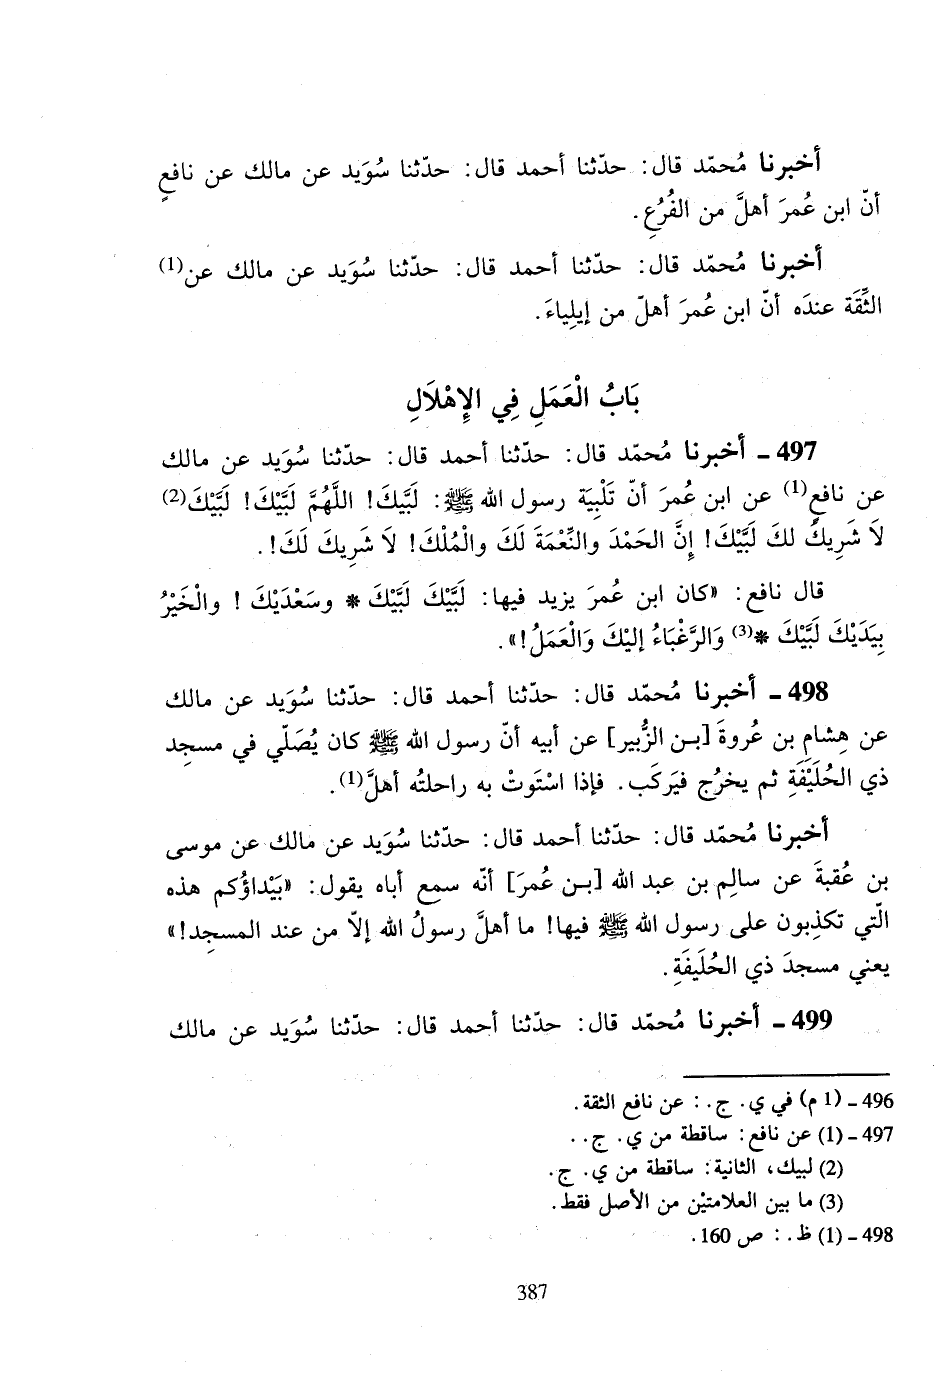 أخبرنا مُحمّد قال: حدّثنا أحمد قال: حدّثنا سُوَيد عن مالك عن نافعٍ
أنّ ابن عُمرَ أهلَّ من الفُرُعِ.
أخبرنا مُحمّد قال: حدّثنا أحمد قال: حدّثنا سُوَيد عن مالك عن(1)
الثِّقَة عندَه أنّ ابن عُمرَ أهلّ من إيلِياءَ.
بَابُ الْعَمَلِ فِي الإِهْلَالِ
497 ـ أخبرنا مُحمّد قال: حدّثنا أحمد قال: حدّثنا سُوَيد عن مالك
عن نافعٍ(1) عن ابن عُمرَ أنّ تَلْبِيَة رسول الله ﷺ: لَبَّيكَ! اللَّهُمَّ لَبَّيْكَ! لَبَّيْكَ(2)
لاَ شَرِيكُ لكَ لَبَّيْكَ! إِنَّ الحَمْدَ والنِّعْمَةَ لَكَ والْمُلْكَ! لاَ شَرِيكَ لَكَ!.
قال نافع: «كان ابن عُمرَ يزيد فيها: لَبَّيْكَ لَبَّيْكَ * وسَعْدَيْكَ ! والْخَيْرُ
بِيَدَيْكَ لَبَّيْكَ *(3) وَالرَّغْبَاءُ إليْكَ وَالْعَمَلُ!».
498 ـ أخبرنا مُحمّد قال: حدّثنا أحمد قال: حدّثنا سُوَيد عن مالك
عن هِشامِ بن عُروةَ [بـن الزُّبير] عن أبيه أنّ رسول الله ﷺ كان يُصَلّي في مسجِد
ذي الحُلَيْفَةِ ثم يخرُج فيَركَب. فإذا اسْتَوتْ به راحلتُه أهلَّ(1).
أخبرنا مُحمّد قال: حدّثنا أحمد قال: حدّثنا سُوَيد عن مالك عن موسى
بن عُقبةَ عن سالِم بن عبد الله [بـن عُمرَ] أنّه سمع أباه يقول: «بَيْداؤُكم هذه
الّتي تكذِبون على رسول الله ﷺ فيها! ما أهلَّ رسولُ الله إلاّ من عند المسجِد!»
يعني مسجدَ ذي الحُلَيفَةِ.
499 ـ أخبرنا مُحمّد قال: حدّثنا أحمد قال: حدّثنا سُوَيد عن مالك
496 ـ (1 م) في ي. ج.: عن نافع الثقة.
497 ـ (1) عن نافع: ساقطة من ي. ج. .
(2) لبيك، الثانية: ساقطة من ي. ج.
(3) ما بين العلامتيْن من الأصل فقط.
498 ـ (1) ظ. : ص 160.
387